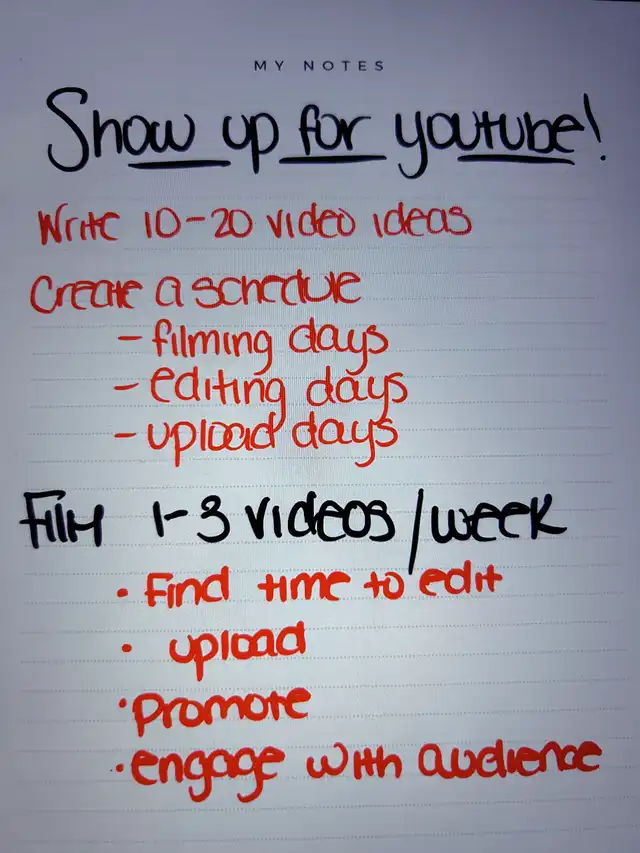 MY NOTES
Show up for youtube!
Write 10-20 video ideas
Create a schedule
- filming days
- editing days
- upload days
Film 1-3 videos/week
• Find time to edit
• upload
• promote
• engage with audience